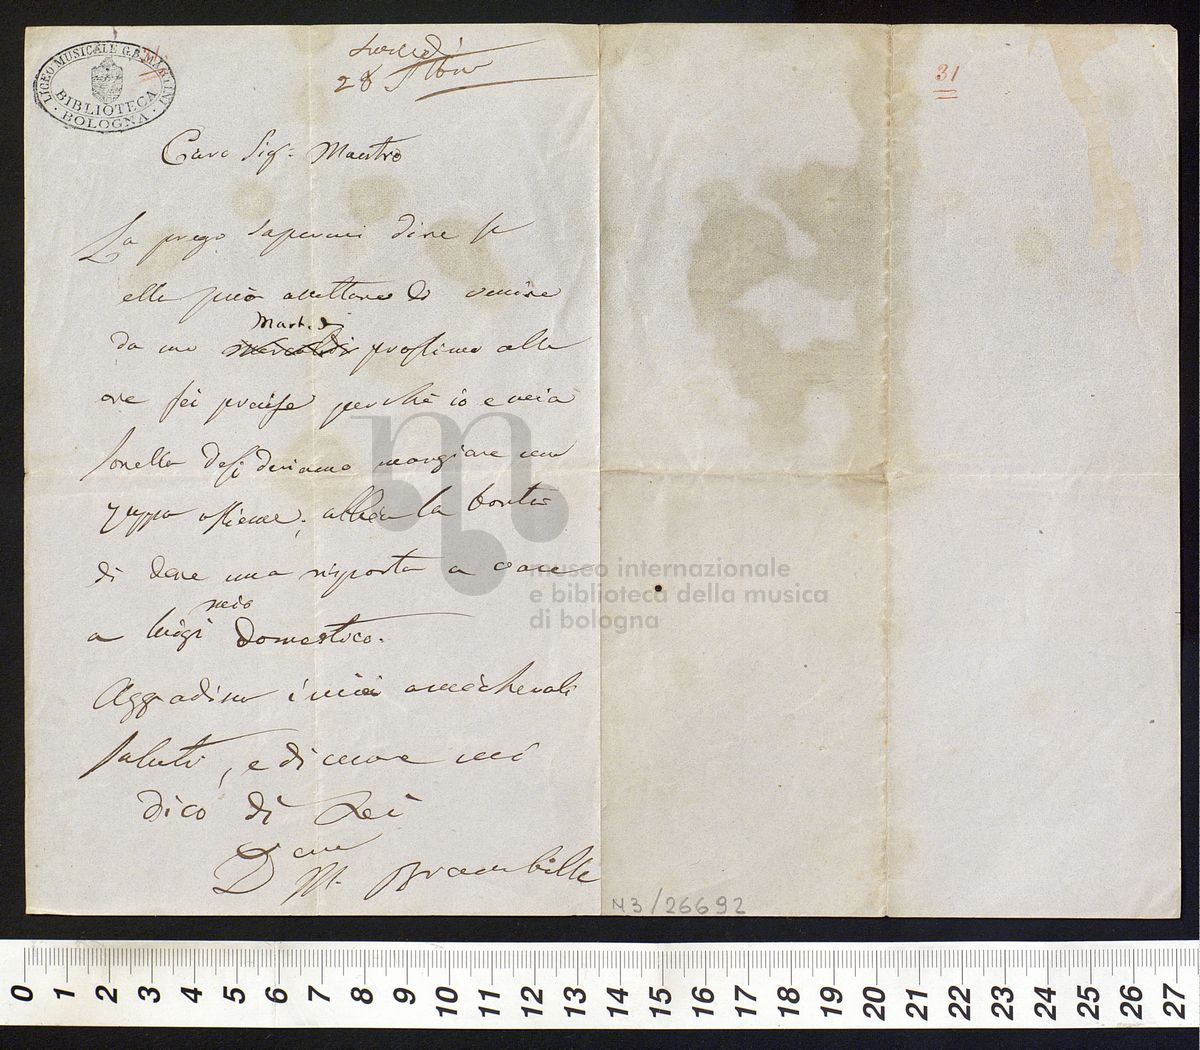 LICEO MUSICALE G.B. MARTINI
BIBLIOTECA
BOLOGNA
28
31
Caro Sigr Maestro
La prego sapermi dire se
ella può accettare di venire
Martedì
da me prossimo alle
ore sei precise perchè io e mia
sorella desideriamo mangiare una
zuppa assieme; abbia la bontà
di dare una risposta a voce
mio
a Luigi domestico.
Aggradino i miei amichevoli
saluti, e di nuovo mi
dico di Lei
M. Brambilla
museo internazionale
e biblioteca della musica
di bologna
N3/26692
0 1 2 3 4 5 6 7 8 9 10 11 12 13 14 15 16 17 18 19 20 21 22 23 24 25 26 27